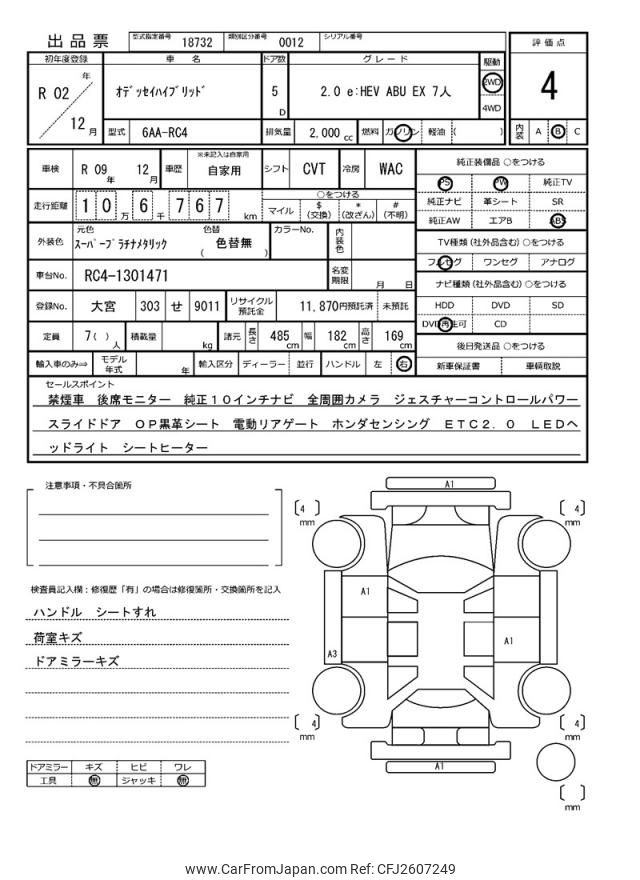 出品票
型式指定番号 18732 類別区分番号 0012 シリアル番号
評価点
4
初年度登録 車名 ドア数 グレード 駆動
R 02 年 12 月
ｵﾃﾞｯｾｲﾊｲﾌﾞﾘｯﾄﾞ
5 D
2.0 e:HEV ABU EX 7人
2WD
4WD
型式 6AA-RC4 排気量 2,000 cc 燃料 ガソリン 軽油 ( )
内装 A B C
車検 R 09 年 12 月 車歴 ※未記入は自家用 自家用 シフト CVT 冷房 WAC
走行距離 10万6千767 km
○をつける
マイル $(交換) *(改ざん) #(不明)
外装色 元色 ｽｰﾊﾟｰﾌﾟﾗﾁﾅﾒﾀﾘｯｸ 色替 ( 色替無 ) カラーNo. 内装色
車台No. RC4-1301471 名変期限 月 日
登録No. 大宮 303 せ 9011 リサイクル預託金 11,870円預託済 未預託
定員 7( )人 積載量 kg 諸元 長さ 485cm 幅 182cm 高さ 169cm
輸入車のみ⇒ モデル年式 年 輸入区分 ディーラー 並行 ハンドル 左 右
純正装備品 ○をつける
PS PW 純正TV
純正ナビ 革シート SR
純正AW エアB ABS
TV種類(社外品含む) ○をつける
フルセグ ワンセグ アナログ
ナビ種類(社外品含む) ○をつける
HDD DVD SD
DVD再生可 CD
後日発送品 ○をつける
新車保証書 車輌取説
セールスポイント
禁煙車 後席モニター 純正１０インチナビ 全周囲カメラ ジェスチャーコントロールパワー
スライドドア ＯＰ黒革シート 電動リアゲート ホンダセンシング ＥＴＣ２．０ ＬＥＤヘ
ッドライト シートヒーター
注意事項・不具合箇所
検査員記入欄：修復歴「有」の場合は修復箇所・交換箇所を記入
ハンドル シートすれ
荷室キズ
ドアミラーキズ
ドアミラー キズ ヒビ ワレ
工具 無 ジャッキ 無
A1
[4] mm
[4] mm
A1
A1
A3
[4] mm
[4] mm
A1
[ ] mm
www.CarFromJapan.com Ref: CFJ2607249